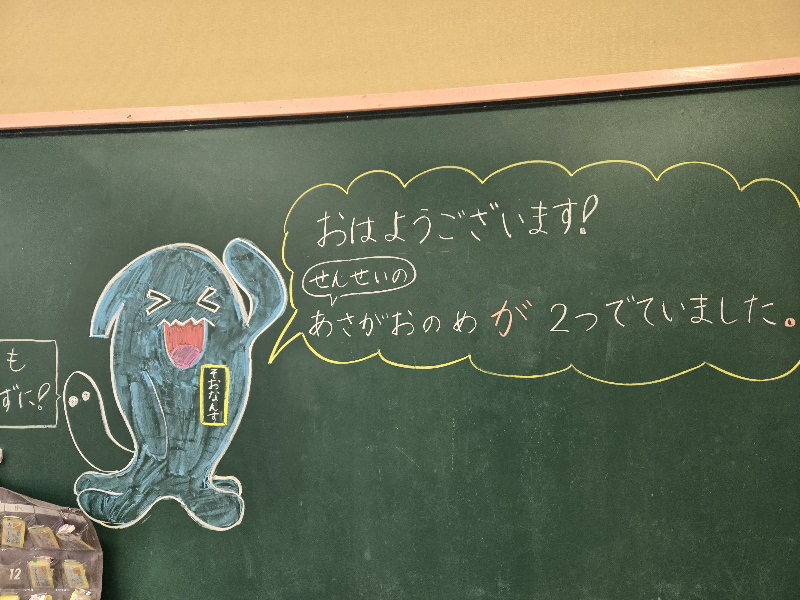 おはようございます!
せんせいの
あさがおのめが2つでていました。
そおなんす
も
ずに!
12